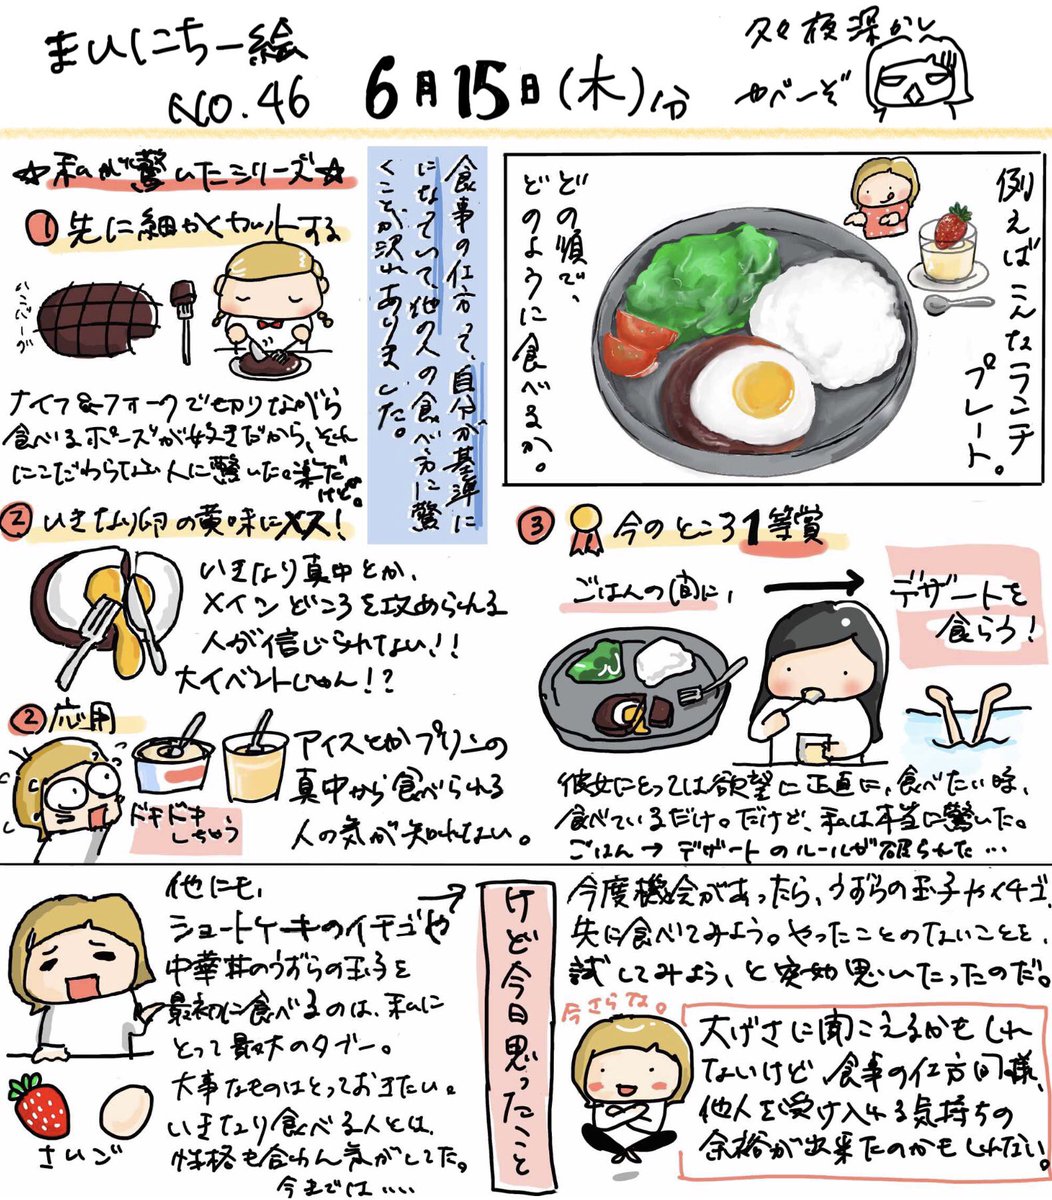 まいにち一絵
NO.46
6月15日(木)分
夕々夜深かし
やべーぞ
例えばこんなランチ
プレート。
どの順で、
どのように食べるか。
食事の仕方って、自分が基準に
になっていて他の人の食べ方に驚
くことが沢山ありました。
☆私が驚いたシリーズ☆
①先に細かくカットする
ハンバーグ
ナイフ&フォークで切りながら
食べるポーズが好きだから、それ
にこだわらない人に驚いた。楽だ
けど。
②いきなり卵の黄味にメス!
いきなり真中とか、
メインどころを攻められる
人が信じられない!!
大イベントじゃん!?
②応用
アイスとかプリンの
真中から食べられる
人の気が知れない。
ドキドキ
しちゃう
③今のところ1等賞
ごはんの間に、
デザートを
食らう!
彼女にとっては欲望に正直に、食べたい時、
食べているだけ。だけど、私は本当に驚いた。
ごはん→デザートのルールが破られた…
他にも、
ショートケーキのイチゴや
中華丼のうずらの玉子を
最初に食べるのは、私に
とって最大のタブー。
大事なものはとっておきたい。
いきなり食べる人とは、
性格も合わん気がしてた。
今までは‥‥
さいご
けど今日思ったこと
今度機会があったら、うずらの玉子やイチゴ、
先に食べてみよう。やったことのないことを、
試してみよう、と突如思いたったのだ。
今さらな。
大げさに聞こえるかもしれ
ないけど、食事の仕方同様、
他人を受け入れる気持ちの
余裕が出来たのかもしれない。